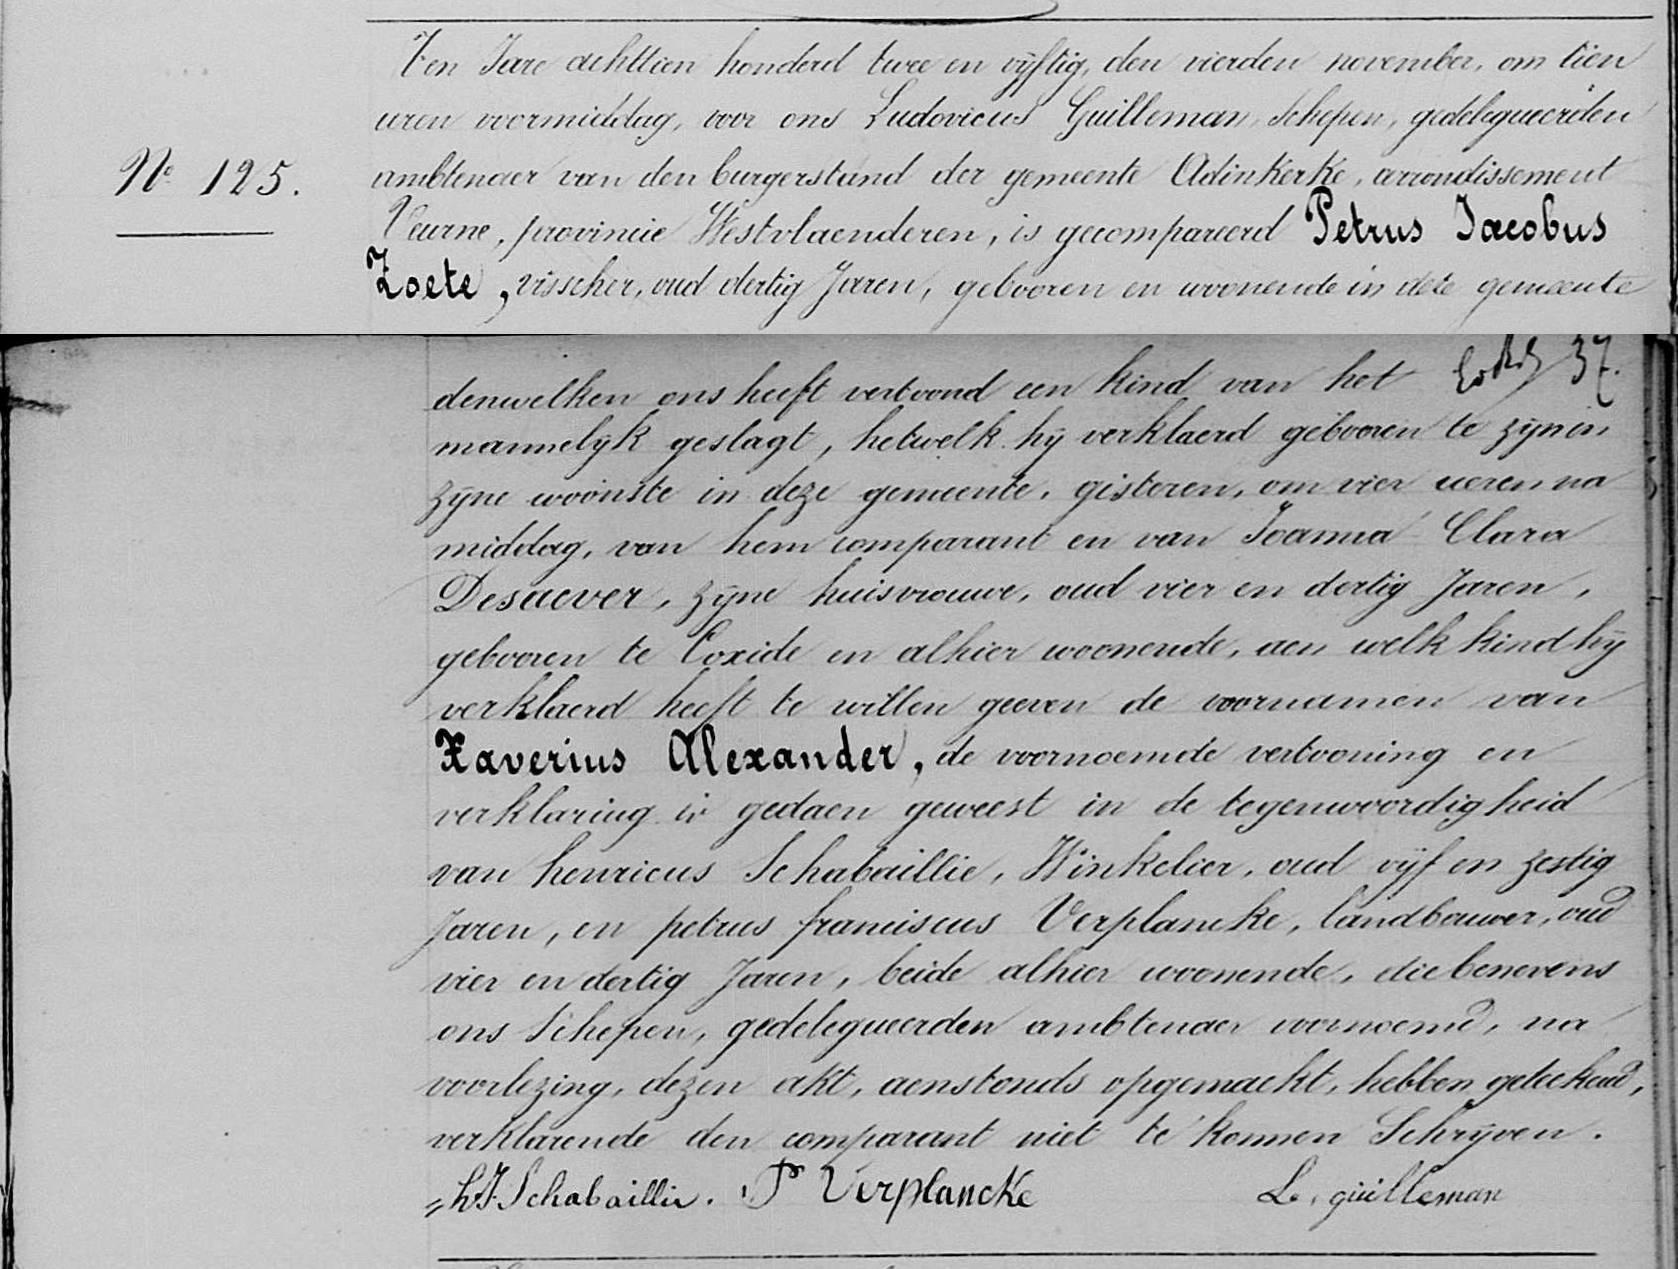 Ten Jare achttien honderd twee en vyftig, den vierden november, om tien
uren voormiddag, voor ons Ludovicus Guilleman, Schepen, gedelegueerden
ambtenaer van den burgerstand der gemeente Adinkerke, arrondissement
N° 125.
Veurne, provincie Westvlaenderen, is gecompareerd Petrus Jacobus
Zoete, visscher, oud dertig Jaren, gebooren en woonende in deze gemeente
37.
denwelken ons heeft vertoond een kind van het
mannelyk geslagt, hetwelk hy verklaerd gebooren te zyn in
zyne woonste in deze gemeente, gisteren, om vier ueren na
middag, van hem comparant en van Joanna Clara
Desaever, zyne huisvrouwe, oud vier en dertig Jaren,
gebooren te Coxide en alhier woonende, aen welk kind hy
verklaerd heeft te willen geeven de voornamen van
Xaverius Alexander, de voornoemde vertooning en
verklaring is gedaen geweest in de tegenwoordigheid
van henricus Schabaillie, Winkelier, oud vyf en zestig
Jaren, en petrus franciscus Verplancke, landbouwer, oud
vier en dertig Jaren, beide alhier woonende, die benevens
ons Schepen, gedelegueerden ambtenaer voornoemd, na
voorlezing, dezen akt, aenstonds opgemaekt, hebben geteekend,
verklarende den comparant niet te konnen Schryven.
h J Schabaillie. P Verplancke L. guilleman